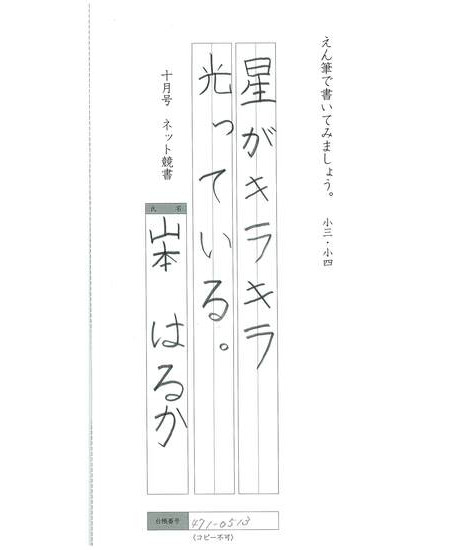 えん筆で書いてみましょう。 小三・小四
星がキラキラ
光っている。
十月号 ネット競書
氏名
山本 はるか
台帳番号 471-0513
(コピー不可)